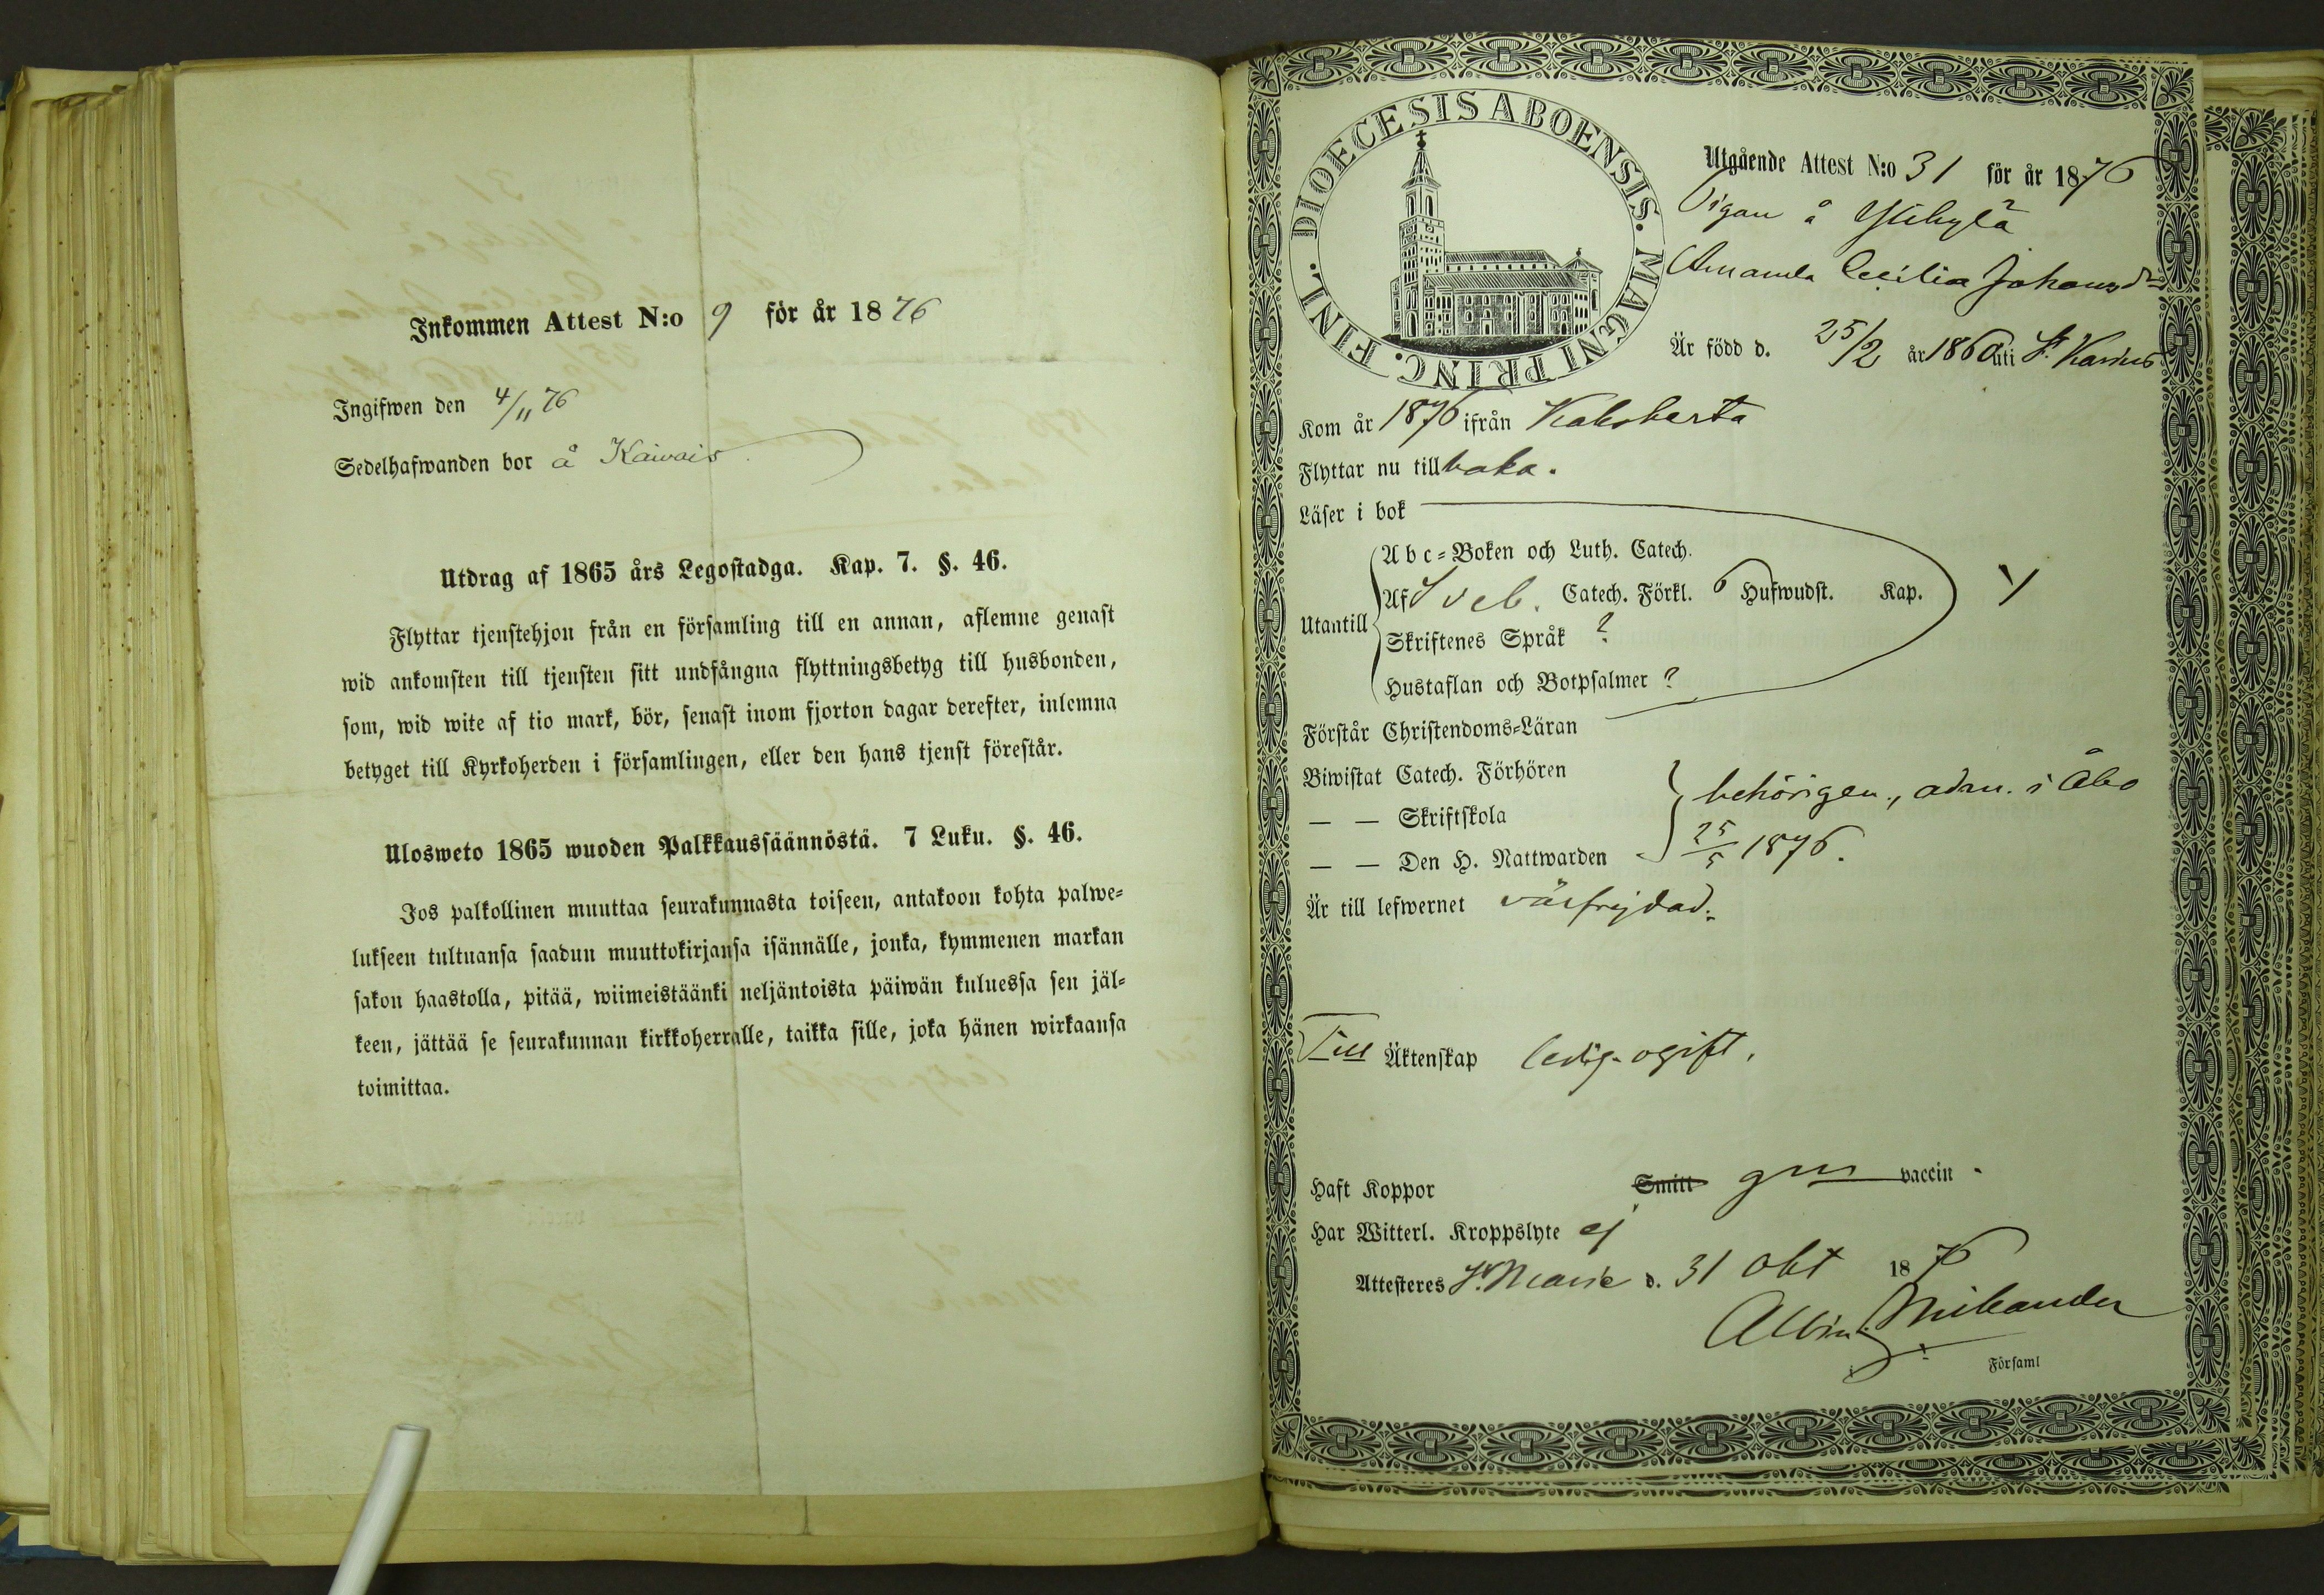 Inkommen Attest N:o 9 för år 1876
Ingifwen den 4/11 76
Sedelhafwanden bor å Kaivais
Utdrag af 1865 års Legostadga. Kap. 7. §. 46.
Flyttar tjenstehjon från en församling till en annan, aflemne genast
wid ankomsten till tjensten sitt undfångna flyttningsbetyg till husbonden,
som, wid wite af tio mark, bör, senast inom fjorton dagar derefter, inlemna
betyget till Kyrkoherden i församlingen, eller den hans tjenst förestår.
Ulosweto 1865 wuoden Palkkaussäännöstä. 7 Luku. §. 46.
Jos palkollinen muuttaa seurakunnasta toiseen, antakoon kohta palwe-
lukseen tultuansa saadun muuttokirjansa isännälle, jonka, kymmenen markan
sakon haastolla, pitää, wiimeistäänki neljäntoista päiwän kuluessa sen jäl-
keen, jättää se seurakunnan kirkkoherralle, taikka sille, joka hänen wirkaansa
toimittaa.
DIOECESIS ABOENSIS. MAGNI PRINC. FINL.
Utgående Attest N:o 31 för år 1876
Pigan å Ylikylä
Amanda Cecilia Johansdr
Är född d. 25/2 år 1860 uti St. Karins
Kom år 1876 ifrån Kakskerta
Flyttar nu tillbaka.
Läser i bok
Utantill
Abc-Boken och Luth. Catech.
Af Sveb. Catech. Förkl. 6 Hufwudst. Kap.
Skriftenes Språk ?
Hustaflan och Botpsalmer ?
Förstår Christendoms-Läran
Biwistat Catech. Förhören
— — Skriftskola
— — Den H. Nattwarden
behörigen, adm. i Åbo
25/5 1876.
Är till lefwernet välfrejdad.
Till Äktenskap ledig. ogift.
Haft Koppor Smitt gm vaccin.
Har Witterl. Kroppslyte ej
Attesteres St. Marie d. 31 Okt 1876
Albin
Församl